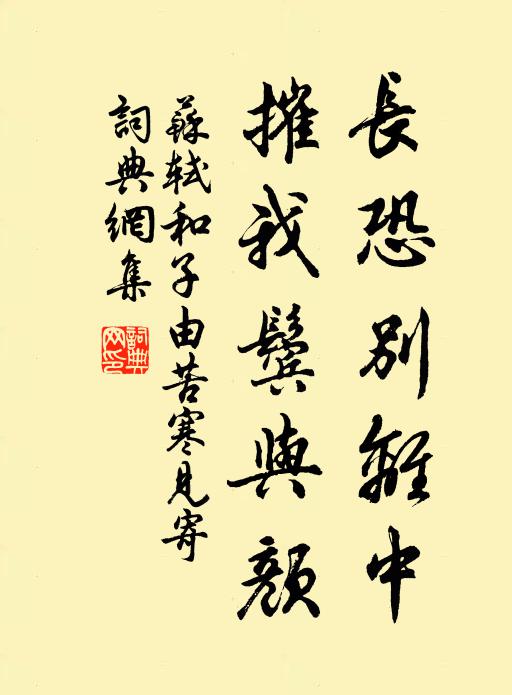 長恐別離中
摧我鬢與顏
蘇軾和子由苦寒見寄
詞典網集
詞典
网印